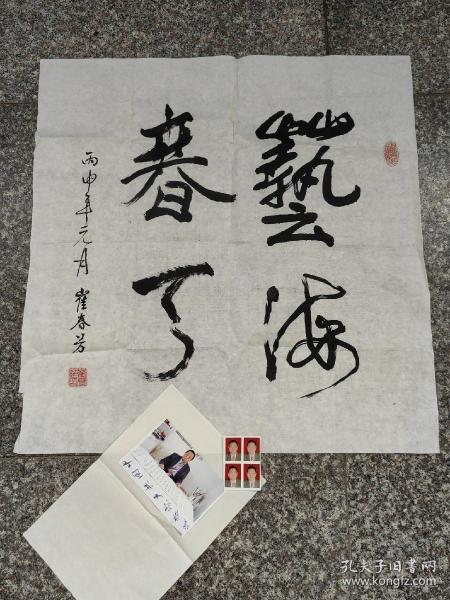 藝海
春了
丙申年元月 崔春芳
孔夫子旧书网
www.kongfz.com